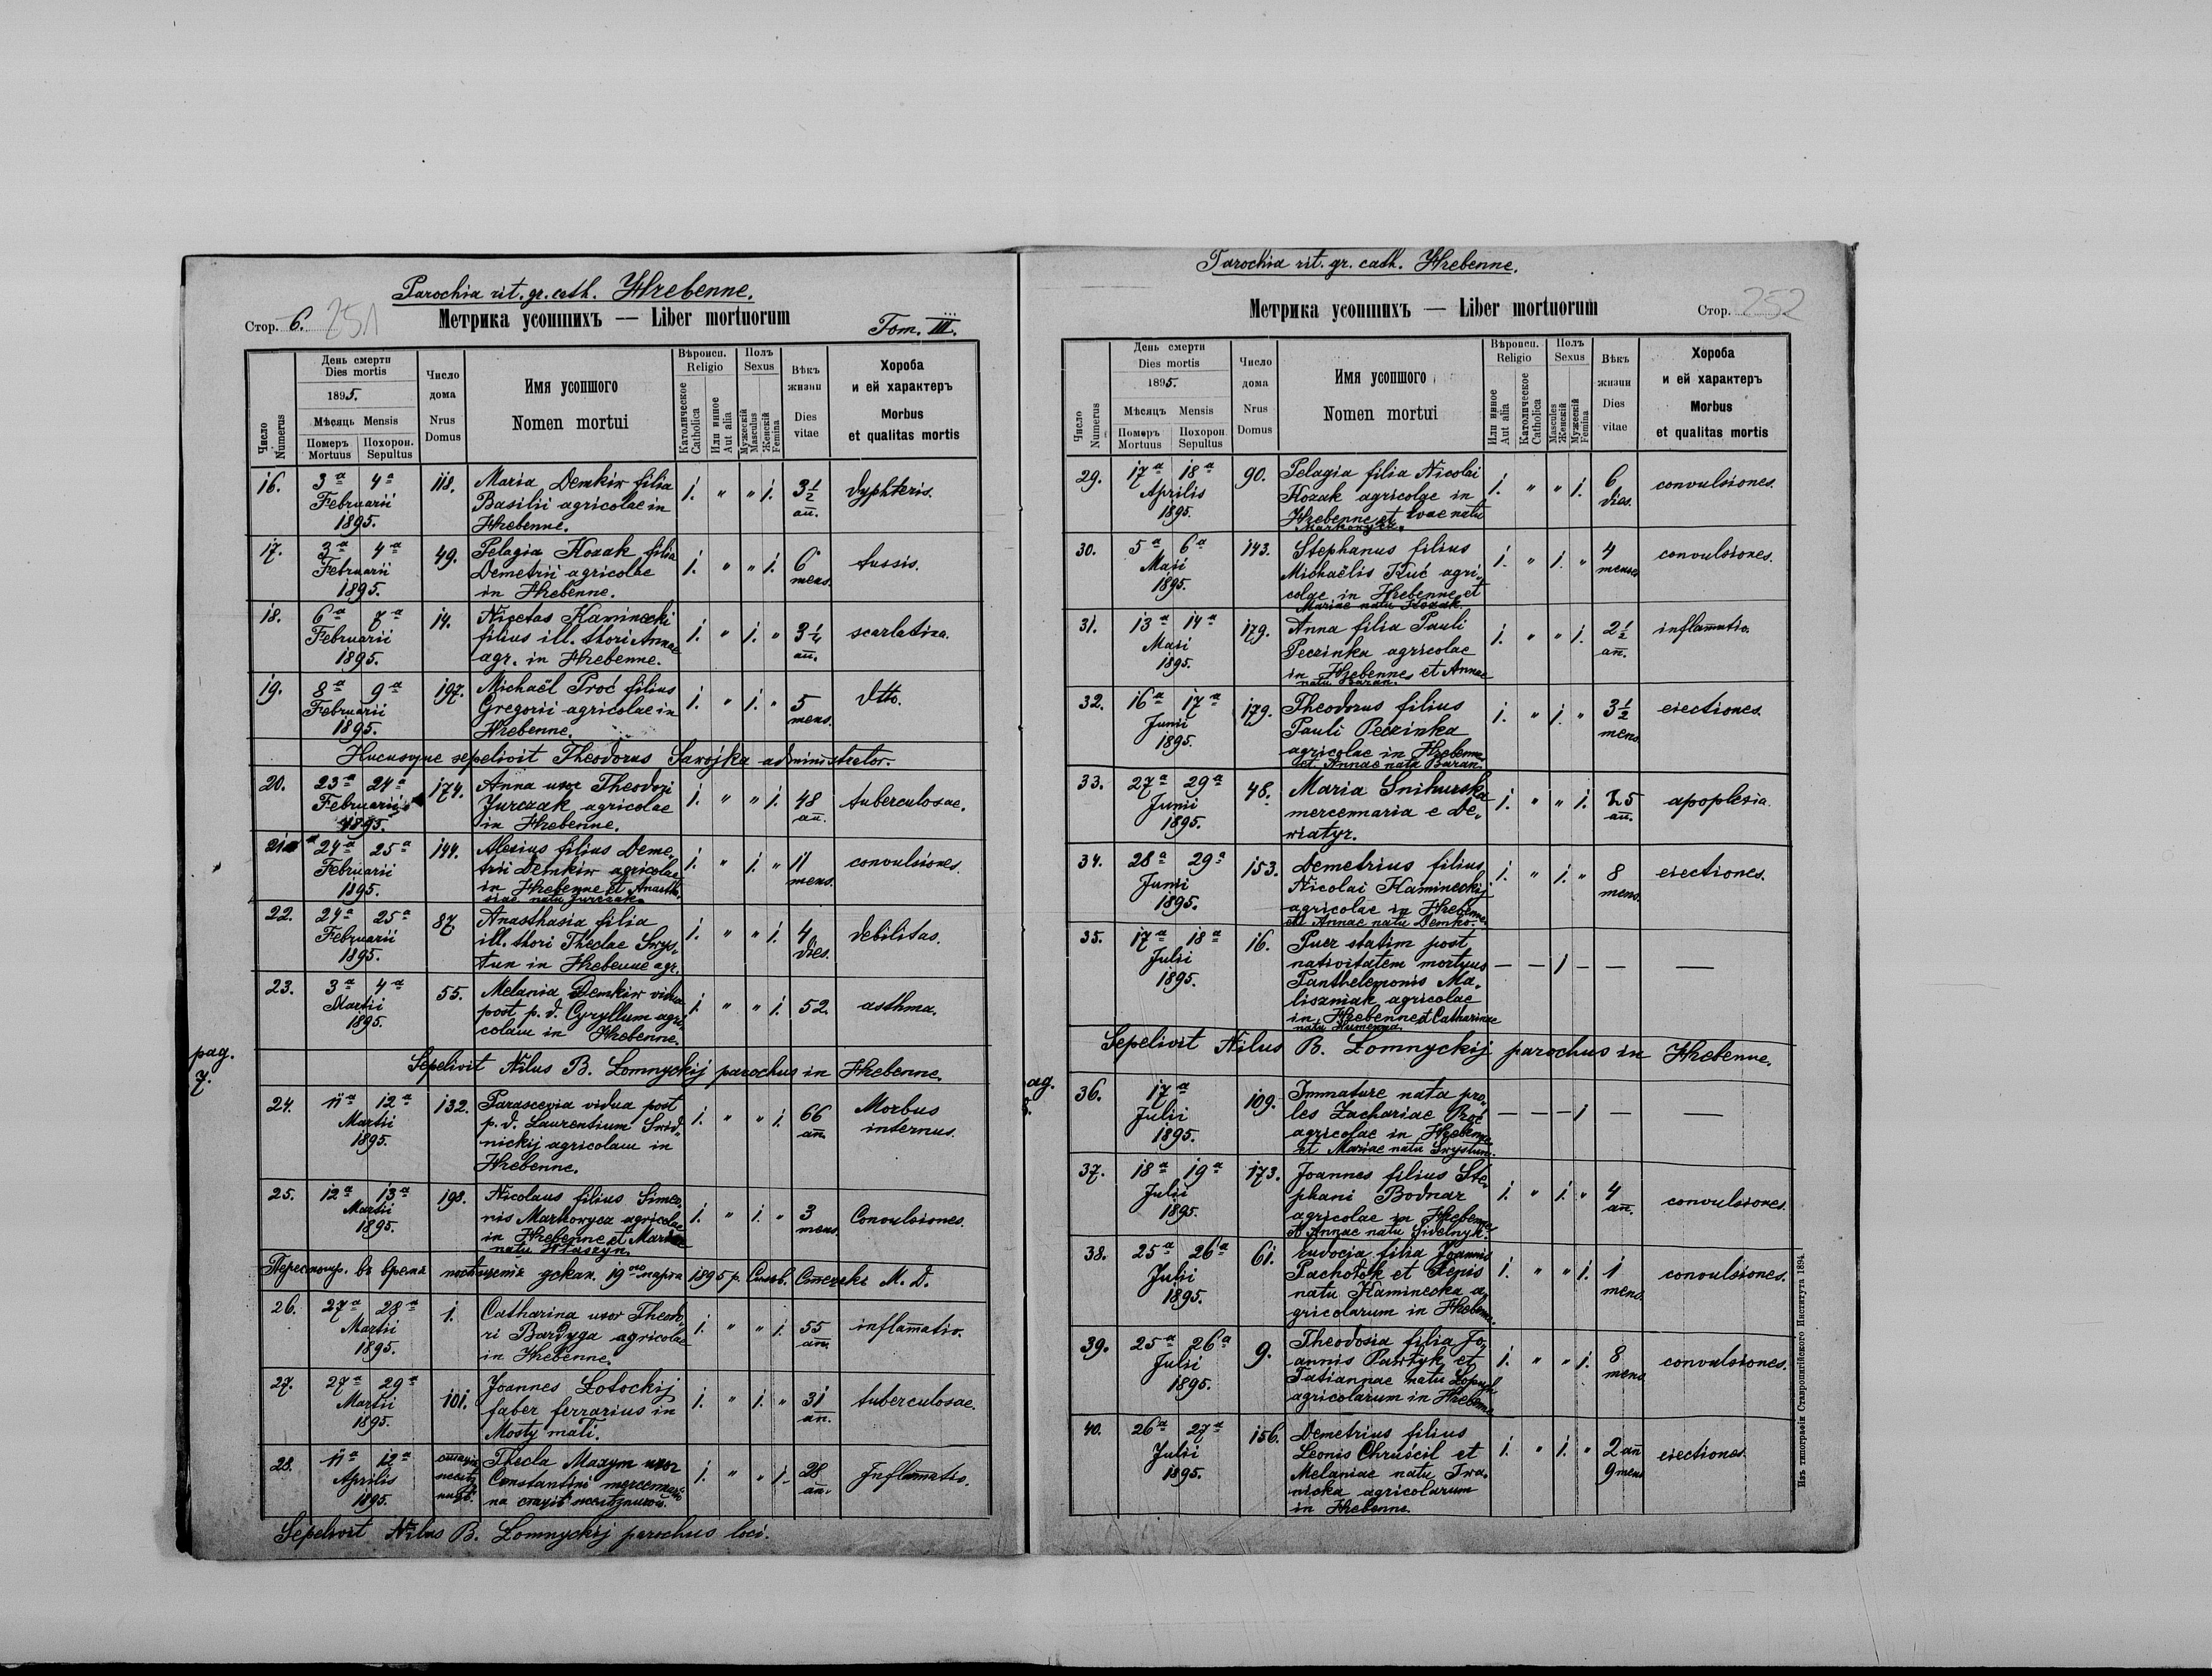 Parochia rit. gr. cath. Hrebenne.
Стор. 6. 251
Метрика усопшихъ — Liber mortuorum
Tom. III.
Число Numerus
День смерти Dies mortis
1895.
Мѣсяць Mensis
Померъ Mortuus
Похорон. Sepultus
Число дома Nrus Domus
Имя усопшого
Nomen mortui
Вѣроисп. Religio
Католическое Catholica
Или инное Aut alia
Полъ Sexus
Мужескій Masculus
Женскій Femina
Вѣкъ жизни Dies vitae
Хороба и ей характеръ
Morbus et qualitas mortis
16. 3ª 4ª Februarii 1895. 118. Maria Demkiw filia 1. " " 1. 3 1/2 an. dyphteris.
Basilii agricolae in
Hrebenne.
17. 3ª 4ª Februarii 1895. 49. Pelagia Kozak filia 1. " " 1. 6 mens. tussis.
Demetrii agricolae
in Hrebenne.
18. 6ª 7ª Februarii 1895. 14. Nicetas Kaminecki 1. " 1. " an. scarlatina.
filius ill. thori Annae
agr. in Hrebenne.
19. 8ª 9ª Februarii 1895. 197. Michaël Proć filius 1. " 1. " 5 mens. dtto.
Gregorii agricolae in
Hrebenne.
Hucusque sepelivit Theodorus Sawojka administrator.
20. 23ª 24ª Februarii 1895. 174. Anna uxor Theodori 1. " " 1. 48 an. tuberculosae.
Jurczak agricolae
in Hrebenne.
21. 24ª 25ª Februarii 1895. 144. Alexius filius Deme- 1. " 1. " 11 mens. convulsiones.
trii Demkiw agricolae
in Hrebenne et Anastha-
siae natu Jurczak.
22. 24ª 25ª Februarii 1895. 87 Anasthasia filia 1. " " 1. 4 dies. debilitas.
ill. thori Theclae Swys-
tun in Hrebenne agr.
23. 3ª 4ª Martii 1895. 55. Melania Demkiw vidua 1. " " 1. 52. asthma.
post p. d. Cyryllum agri-
colam in Hrebenne.
pag. 7.
Sepelivit Nilus B. Lomnyckij parochus in Hrebenne.
24. 11ª 12ª Martii 1895. 132. Parascevia vidua post 1. " " 1. 66 an. Morbus internus.
p. d. Laurentium Swid-
nickij agricolam in
Hrebenne.
25. 12ª 13ª Martii 1895. 198. Nicolaus filius Simeo- 1. " 1. " 3 mens. Convulsiones.
nis Markowycz agricolae
in Hrebenne et Mariae
natu
въ время декан. 19го марта 1895 р. М. Д.
26. 27ª 28ª Martii 1895. 1. Catharina uxor Theodo- 1. " " 1. 55 an. inflamatio.
ri Bardyga agricolae
in Hrebenne.
27. 27ª 29ª Martii 1895. 101. Joannes Lotockij 1. " 1. " 31 an. tuberculosae.
faber ferrarius in
Mosty mali.
28. 11ª 12ª Aprilis 1895. Thecla Maxym uxor 1. " " 1. 28 an. Inflamatio.
Constantini mercenarii
на стаціѣ
Sepelivit Nilus B. Lomnyckij parochus loci.
Parochia rit. gr. cath. Hrebenne.
Метрика усопшихъ — Liber mortuorum
Стор. 252
Число Numerus
День смерти Dies mortis
1895.
Мѣсяцъ Mensis
Померъ Mortuus
Похорон. Sepultus
Число дома Nrus Domus
Имя усопшого
Nomen mortui
Вѣроисп. Religio
Или инное Aut alia
Католическое Catholica
Полъ Sexus
Masculus Женскій
Мужескій Femina
Вѣкъ жизни Dies vitae
Хороба и ей характеръ
Morbus et qualitas mortis
29. 17ª 18ª Aprilis 1895. 90. Pelagia filia Nicolai 1. " " 1. 6 dies. convulsiones.
Kozak agricolae in
Hrebenne et Evae natu
Markowycz.
30. 5ª 6ª Maji 1895. 143. Stephanus filius 1. " 1. " 4 menses convulsiones.
Michaëlis Kuć agri-
colae in Hrebenne et
Mariae natu Kozak.
31. 13ª 14ª Maji 1895. 179. Anna filia Pauli 1. " " 1. 2 1/2 an. inflamatio.
Peczinka agricolae
in Hrebenne et Annae
natu Baran.
32. 16ª 17ª Junii 1895. 179. Theodorus filius 1. " 1. " 3 1/2 mens. eiectiones.
Pauli Peczinka
agricolae in Hrebenne
et Annae natu Baran.
33. 27ª 29ª Junii 1895. 48. Maria Snihurska 1. " " 1. an. apoplexia.
mercennaria e De-
wiatyr.
34. 28ª 29ª Junii 1895. 153. Demetrius filius 1. " 1. " 8 mens. eiectiones.
Nicolai Kamineckij
agricolae in Hrebenne
et Annae natu Demko.
35. 17ª 18ª Julii 1895. 16. Puer statim post — — 1 — — —
nativitatem mortuus
Panthelemonis Ma-
liszniak agricolae
in Hrebenne et Catharinae
natu Humenna.
Sepelivit Nilus B. Lomnyckij parochus in Hrebenne.
pag. 8.
36. 17ª Julii 1895. 109. Immature nata pro- — — — 1 — —
les Zachariae Proć
agricolae in Hrebenne
et Mariae natu Swystun.
37. 18ª 19ª Julii 1895. 173. Joannes filius Ste- 1. " 1. " 4 an. convulsiones.
phani Bodnar
agricolae in Hrebenne
et Annae natu Sidelnyk.
38. 25ª 26ª Julii 1895. 61. Eudocia filia Joannis 1. " " 1. 1 mens. convulsiones.
Pachołok et Xenis
natu Kaminecka a-
gricolarum in Hrebenne.
39. 25ª 26ª Julii 1895. 9. Theodosia filia Jo- 1. " " 1. 8 mens. convulsiones.
annis Pawłyk et
Tatiannae natu Łopuch
agricolarum in Hrebenne
40. 26ª 27ª Julii 1895. 156. Demetrius filius 1. " 1. " 2 an 9 mens eiectiones.
Leonis Chruściel et
Melaniae natu Iwa-
nicka agricolarum
in Hrebenne.
Изъ типографіи Ставропигійского Института 1894.